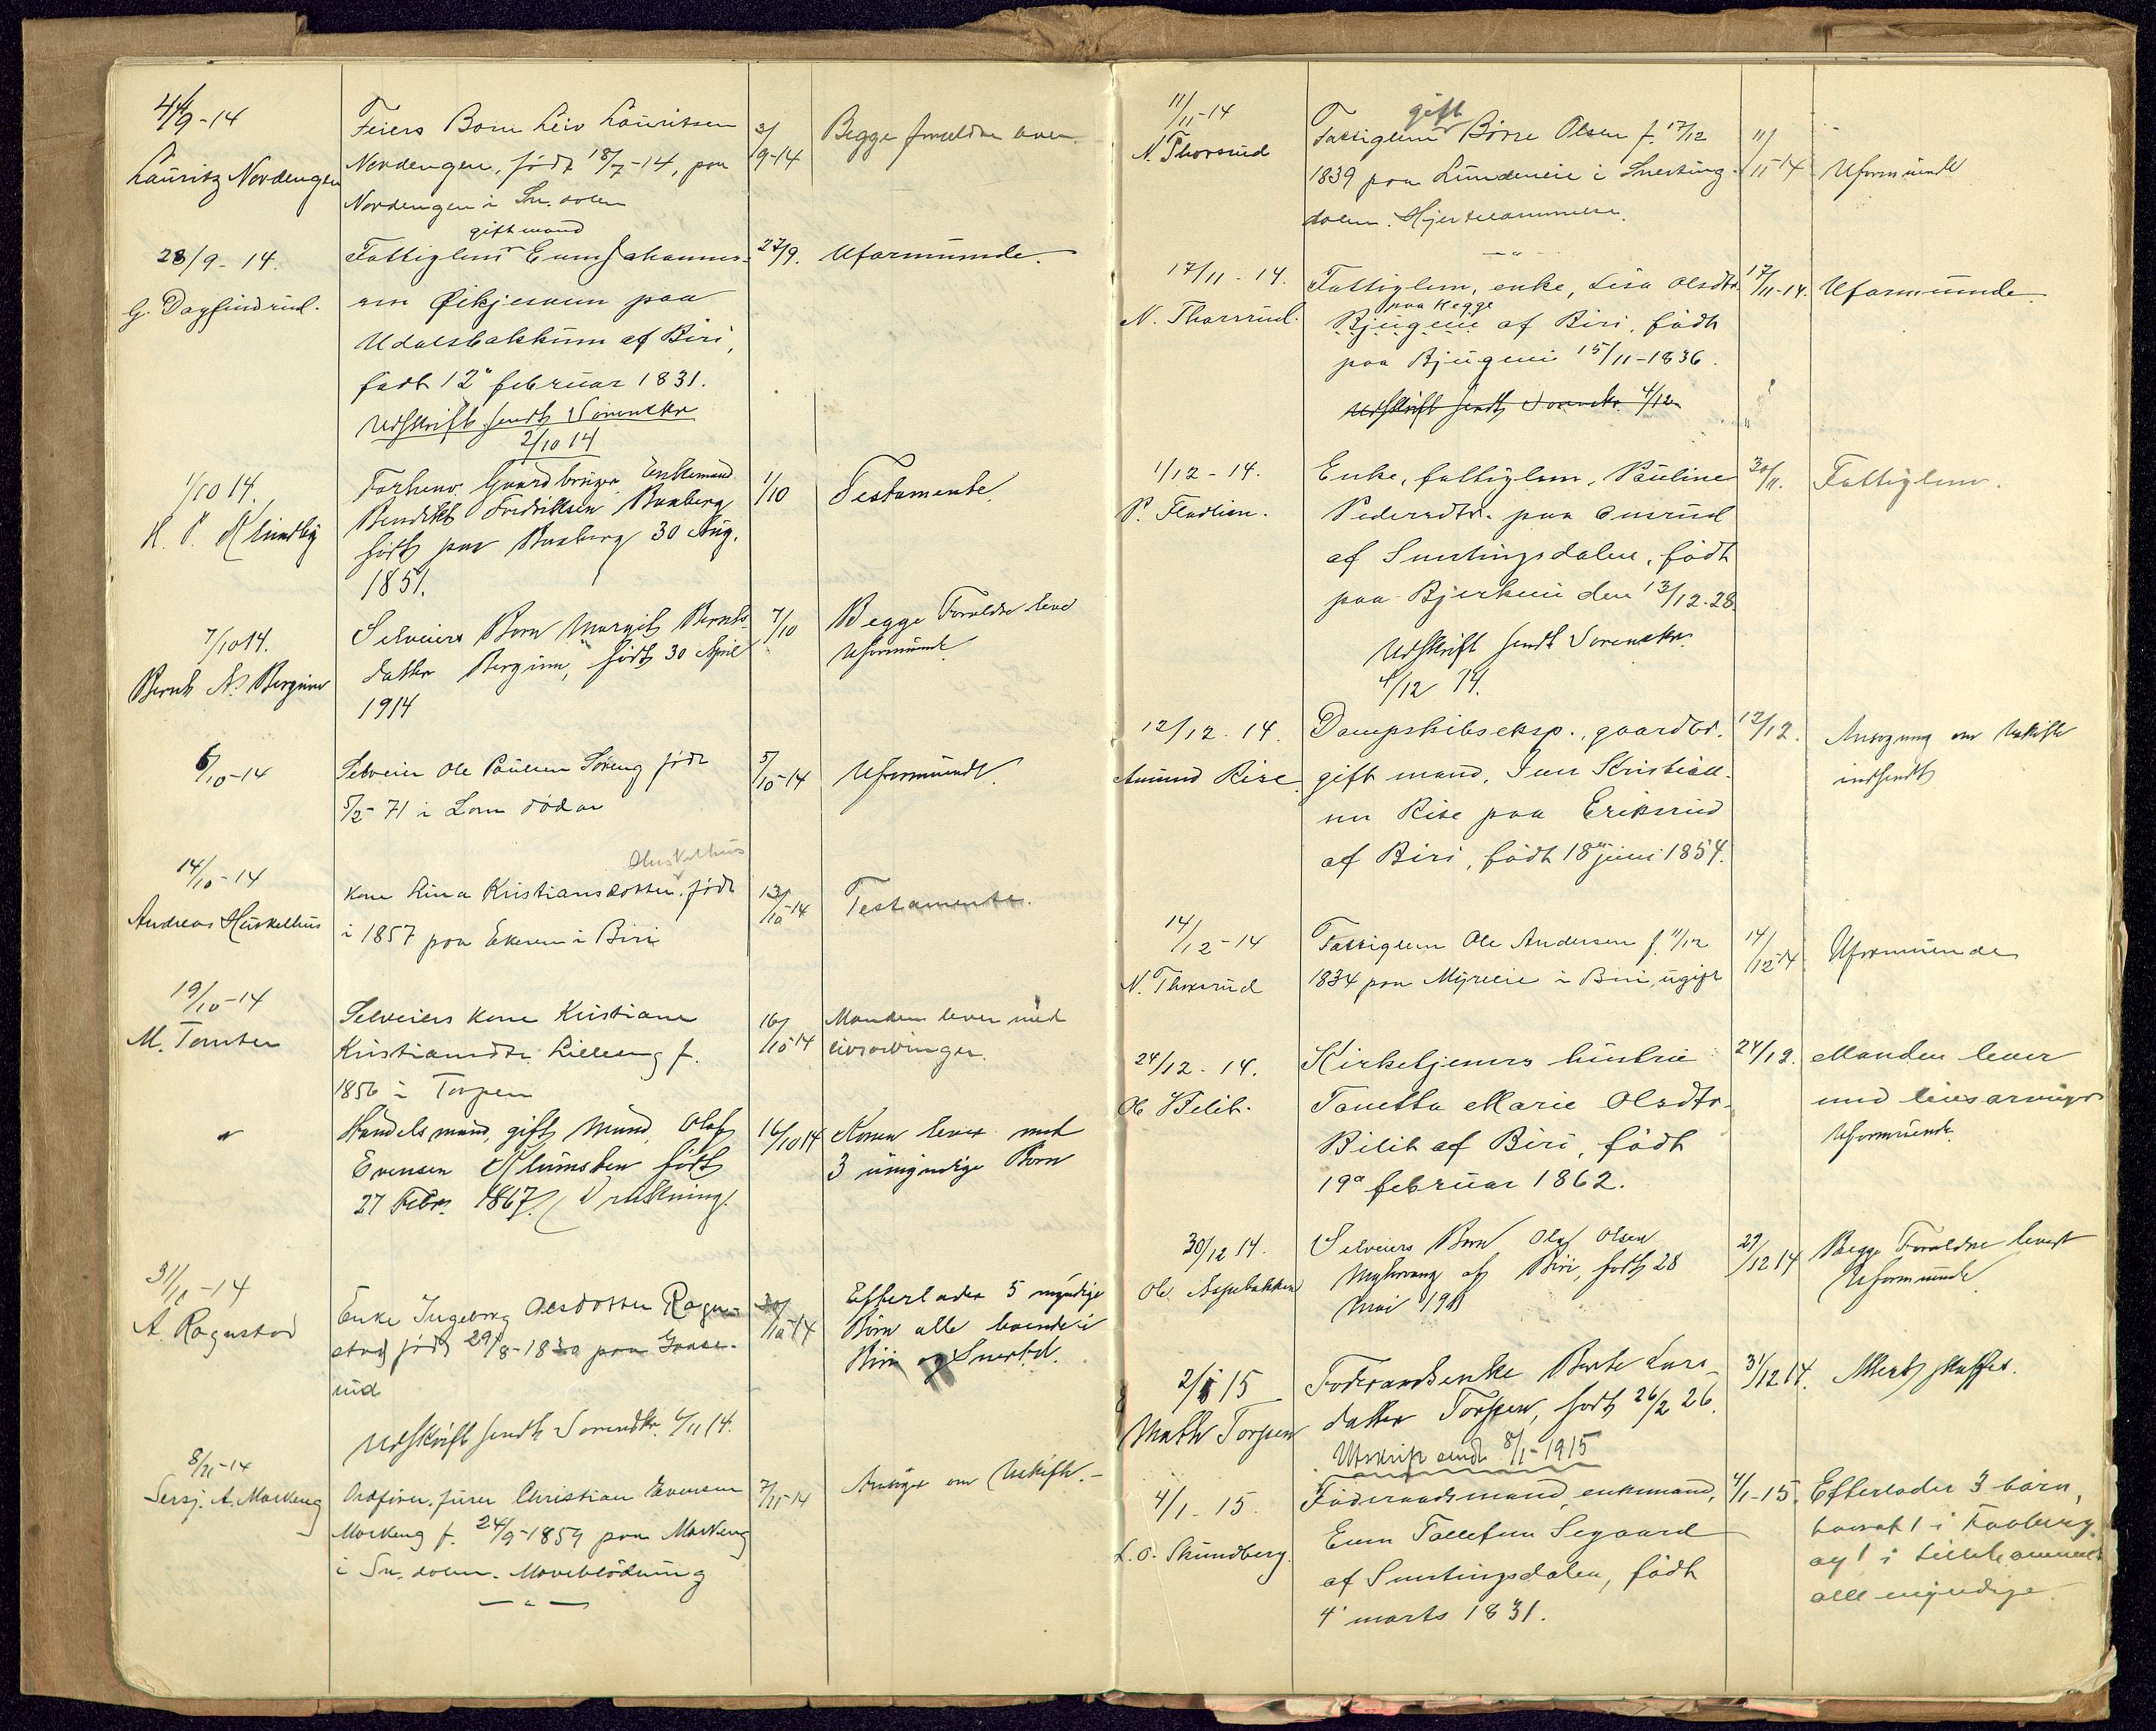 4/9-14
Lauritz Nordengen
Feiers Barn Leiv Lauritsen
Nordengen, født 18/7-14, paa
Nordengen i Sn. dalen
3/9-14
Begge forældre lever
28/9-14.
G. Dagfindrud.
gift mand
Fattiglem Even Johannes-
sen Øikjesveen paa
Udalsbakken af Biri,
født 12te februar 1831.
Udskrift sendt Sorenskr
2/10 14
27/9.
Uformuende.
1/10 14.
H. P. Klundby
Forhenv. Gaardbruger Enkemand
Bendikt Fredriksen Braaberg
født paa Braaberg 30 Aug.
1851.
1/10
Testamente.
7/10 14.
Bernt N. Bergum
Selveiers Barn Margit Bernts-
datter Bergum, født 30 April
1914
7/10
Begge Forældre leve
Uformuende
6/10-14
Selveier Ole Paulsen Søreng født
5/2-71 i Lom død av
5/10-14
Uformuende.
14/10-14
Andreas Huskelhus
Huskelhus
Kone Lina Kristiansdotter født
i 1857 paa Ekeren i Biri
13/10-14
Testamente.
19/10-14
M. Tomter
Selveiers kone Kristiane
Kristiansdtr. Lilleeng f.
1856 i Torpen
16/10-14
Manden lever med
livsarvinger.
"
Handelsmand, gift Mand, Olaf
Evensen Klumsten født
27 Febr. 1867.
16/10 14
Konen lever med
3 umyndige Børn
31/10-14
A. Ragnstad
Enke Ingeborg Olesdotter Ragn-
stad født 29/8-1830 paa Gaase-
rud
Udskrift sendt Sorenskr. 4/11 14.
30/10-14
Efterlader 5 myndige
Børn alle boende i
Biri og Snertd.
8/11-14
Sersj. A. Markeng
Ordfører, furer Christian Evensen
Markeng f. 24/9-1859 paa Markeng
i Sn. dalen. Maveblødning
— " —
7/11-14
Ansøger om Uskifte. –
11/11-14
N. Thorsrud
gift
Fattiglem Børre Olsen f. 17/12
1839 paa Lundeneie i Snerting-
dalen. Hjertelammelse.
— " —
11/11-14
Uformuende
17/11-14.
N. Thorsrud.
Fattiglem, enke, Lisa Olsdtr.
paa Hegge
Bjugeneie af Biri, født
paa Bjugeneie 15/11-1836.
Udskrift sendt Sorenskr. 4/12
17/11-14.
Uformuende
1/12-14.
P. Fladlien.
Enke, fattiglem, Pauline
Pedersdtr. paa Onsrud
af Snertingsdalen, født
paa Bjerkeeie den 13/12.28
Udskrift sendt Sorenskr.
4/12 14.
30/11.
Fattiglem.
12/12. 14.
Amund Rise
Dampskibseksp., gaardbr.
gift mand, Iver Kristian-
sen Rise paa Eriksrud
af Biri, født 18de juni 1854.
12/12.
Ansøgning om Uskifte
indsendt
14/12-14
N. Thorsrud
Fattiglem Ole Andersen f. 11/12
1834 paa Myreeie i Biri, ugift
14/12-14
Uformuende
24/12. 14.
Ole Bilit.
Kirketjeners hustru
Tanetta Marie Olsdtr.
Bilit af Biri, født
19de februar 1862.
24/12.
Manden lever
med livsarvinger
Uformuende.
30/12 14.
Ole Aspebakken
Selveiers Barn Olaf Olsen
Myhrvang af Biri, født 28
Mai 1911
29/12 14
Begge Forældre lever
Uformuende
2/1 15
Math Torpen
Føderaadsenke Berte Lars-
datter Torpen, født 26/2 26.
Utskrift sendt 8/1-1915
31/12 14.
4/1. 15.
L. O. Skundberg.
Føderaadsmand, enkemand,
Even Tollefsen Segaard
af Snertingsdalen, født
4de marts 1831.
4/1-15.
Efterlader 3 børn,
hvoraf 1 i Faaberg
og 1 i Lillehammer
alle myndige